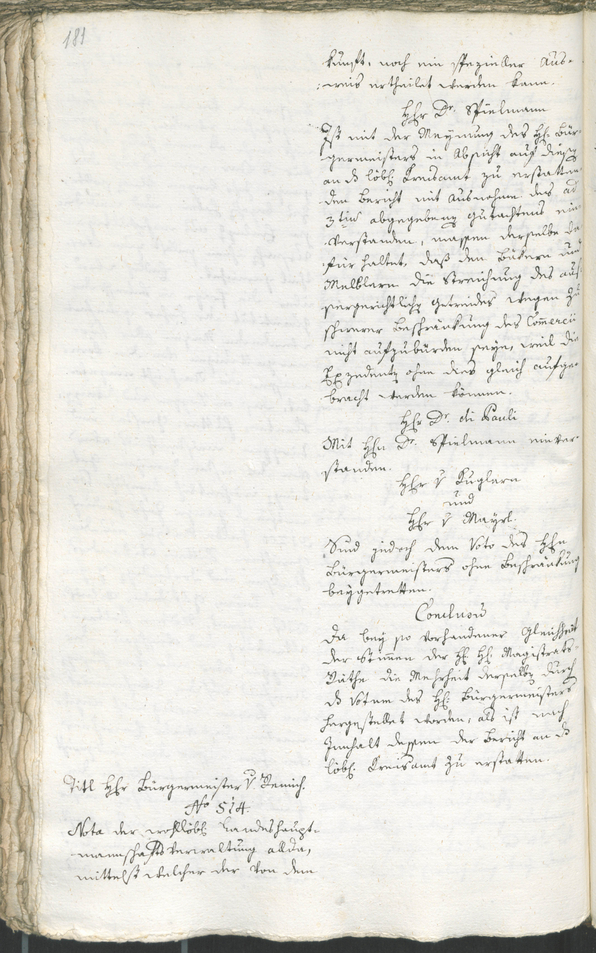 181
kunft, noch ein spezieller Aus-
weis ertheilet werden kann.
Hhr Dr. Spielmann
Ist mit der Meynung des H. Bür-
germeisters in Absicht auf diesen
an d löbl. Kreisamt zu erstatten
den Bericht mit Ausnahme des ad
3tium abgegebenen Gutachtens ein
verstanden, massen derselbe da
für haltet, daß den Bäkern und
Melblern die Streichung des aus
sergerichtlichen Getreides wegen zu
schwerer Beschränkung des Comercii
nicht aufzubürden seye, weil die
Exzedenten ohne dies gleich aufge-
bracht werden können.
Hhr Dr. di Pauli
Mit Hhn Dr. Spielmann einver-
standen.
Hhr v Kuglern
und
Hhr v Mayrl.
Sind jedoch dem Voto des Hhn
Bürgermeisters ohne Beschränkung
beygetretten.
Conclusum
Da bey so vorhandener Gleichheit
der Stimen der H. H. Magistrats-
Räthe die Mehrheit derselben durch
d Votum des H. Bürgermeisters
hergestellet worden, als ist nach
Innhalt dessen der Bericht an d
löbl. Kreisamt zu erstatten.
Titl Hhr Bürgermeister v Remich.
No 514.
Nota der wohllöbl. Landeshaupt-
mannschaftsverwaltung allda,
mittelst welcher der von dem